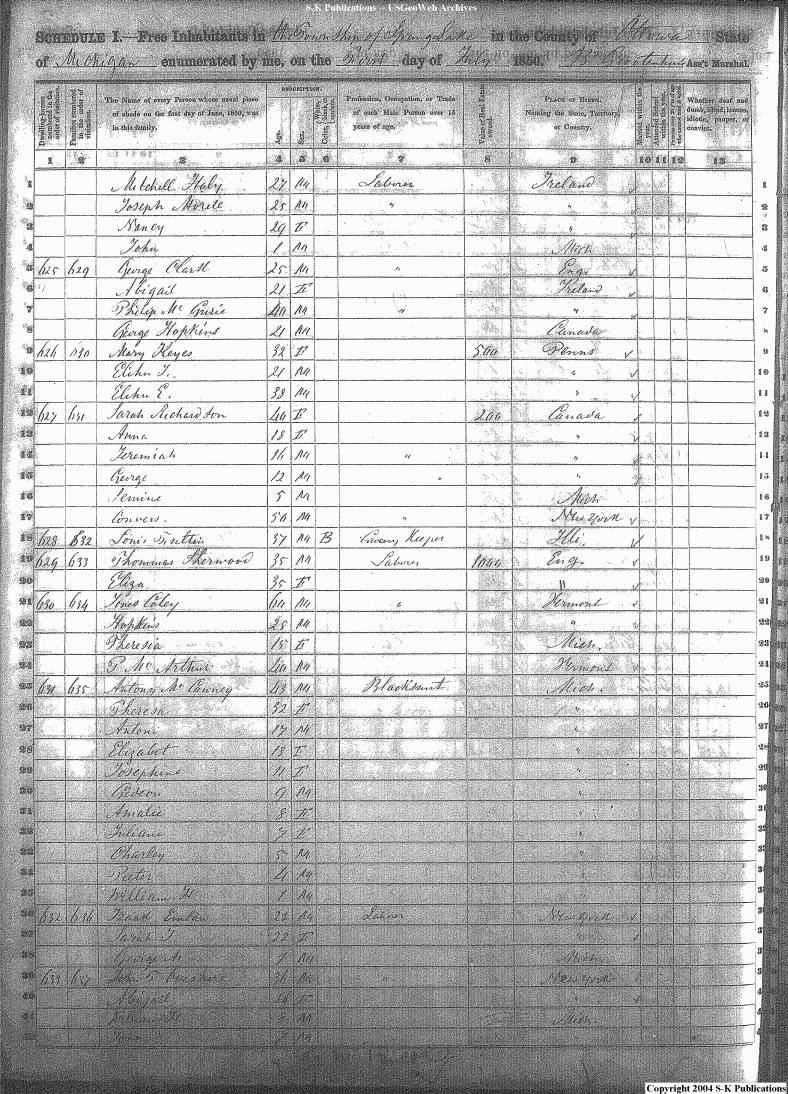 S-K Publications -- USGenWeb Archives
SCHEDULE I.—Free Inhabitants in the Township of Spring Lake in the County of Ottowa State
of Michigan enumerated by me, on the First day of July 1850. Ass't Marshal.
DESCRIPTION.
Dwelling-houses numbered in the order of visitation.
Families numbered in the order of visitation.
The Name of every Person whose usual place of abode on the first day of June, 1850, was in this family.
Age.
Sex.
White, black, or mulatto.
Profession, Occupation, or Trade of each Male Person over 15 years of age.
Value of Real Estate owned.
PLACE OF BIRTH. Naming the State, Territory, or Country.
Married within the year.
Attended School within the year.
Whether deaf and dumb, blind, insane, idiotic, pauper, or convict.
1 2 3 4 5 6 7 8 9 10 11 12 13
1 Mitchell Haly 27 M Laborer Ireland 1
2 Joseph Morele 25 M " " 2
3 Nancy 29 F " 3
4 John 1 M Mich 4
5 625 629 George Clark 25 M " Eng. 5
6 Abigail 21 F Ireland 6
7 Philip Mc 40 M " " 7
8 George Hopkins 21 M Canada 8
9 626 630 Mary Keyes 32 F 500 Penns 9
10 Elihu 21 M " 10
11 Elihu E. 38 M " 11
12 627 631 Sarah Richardson 40 F 200 Canada 12
13 Anna 18 F " 13
14 Jeremiah 16 M " " 14
15 George 12 M " 15
16 Semine 5 M Mich 16
17 Convers. 50 M " New York 17
18 628 632 Louis 37 M B Grocery Keeper Illi. 18
19 629 633 Thommas Sherwood 35 M Laborer 1000 Eng. 19
20 Eliza 35 F " 20
21 630 634 Jones Coley 60 M " Vermont 21
22 Hopkins 25 M " 22
23 Theresia 15 F Mich. 23
24 P. Mc Arthur 40 M Vermont 24
25 631 635 Antony Mc Canney 43 M Blacksmit Mich. 25
26 Theresa 32 F " 26
27 Antoni 17 M " 27
28 Elizabet 13 F " 28
29 Josephine 11 F " 29
30 Gideon 9 M " 30
31 Amalie 8 F " 31
32 Juliane 7 F " 32
33 Charley 5 M " 33
34 Pieter 4 M " 34
35 William H 1 M " 35
36 632 636 23 M Laborer New York 36
37 Sarah J 22 F " 37
38 George 1 M Mich. 38
39 633 637 John 36 M " New York 39
40 Abigail 36 F " 40
41 William H 8 M Mich. 41
42 John 7 M " 42
Copyright 2004 S-K Publications